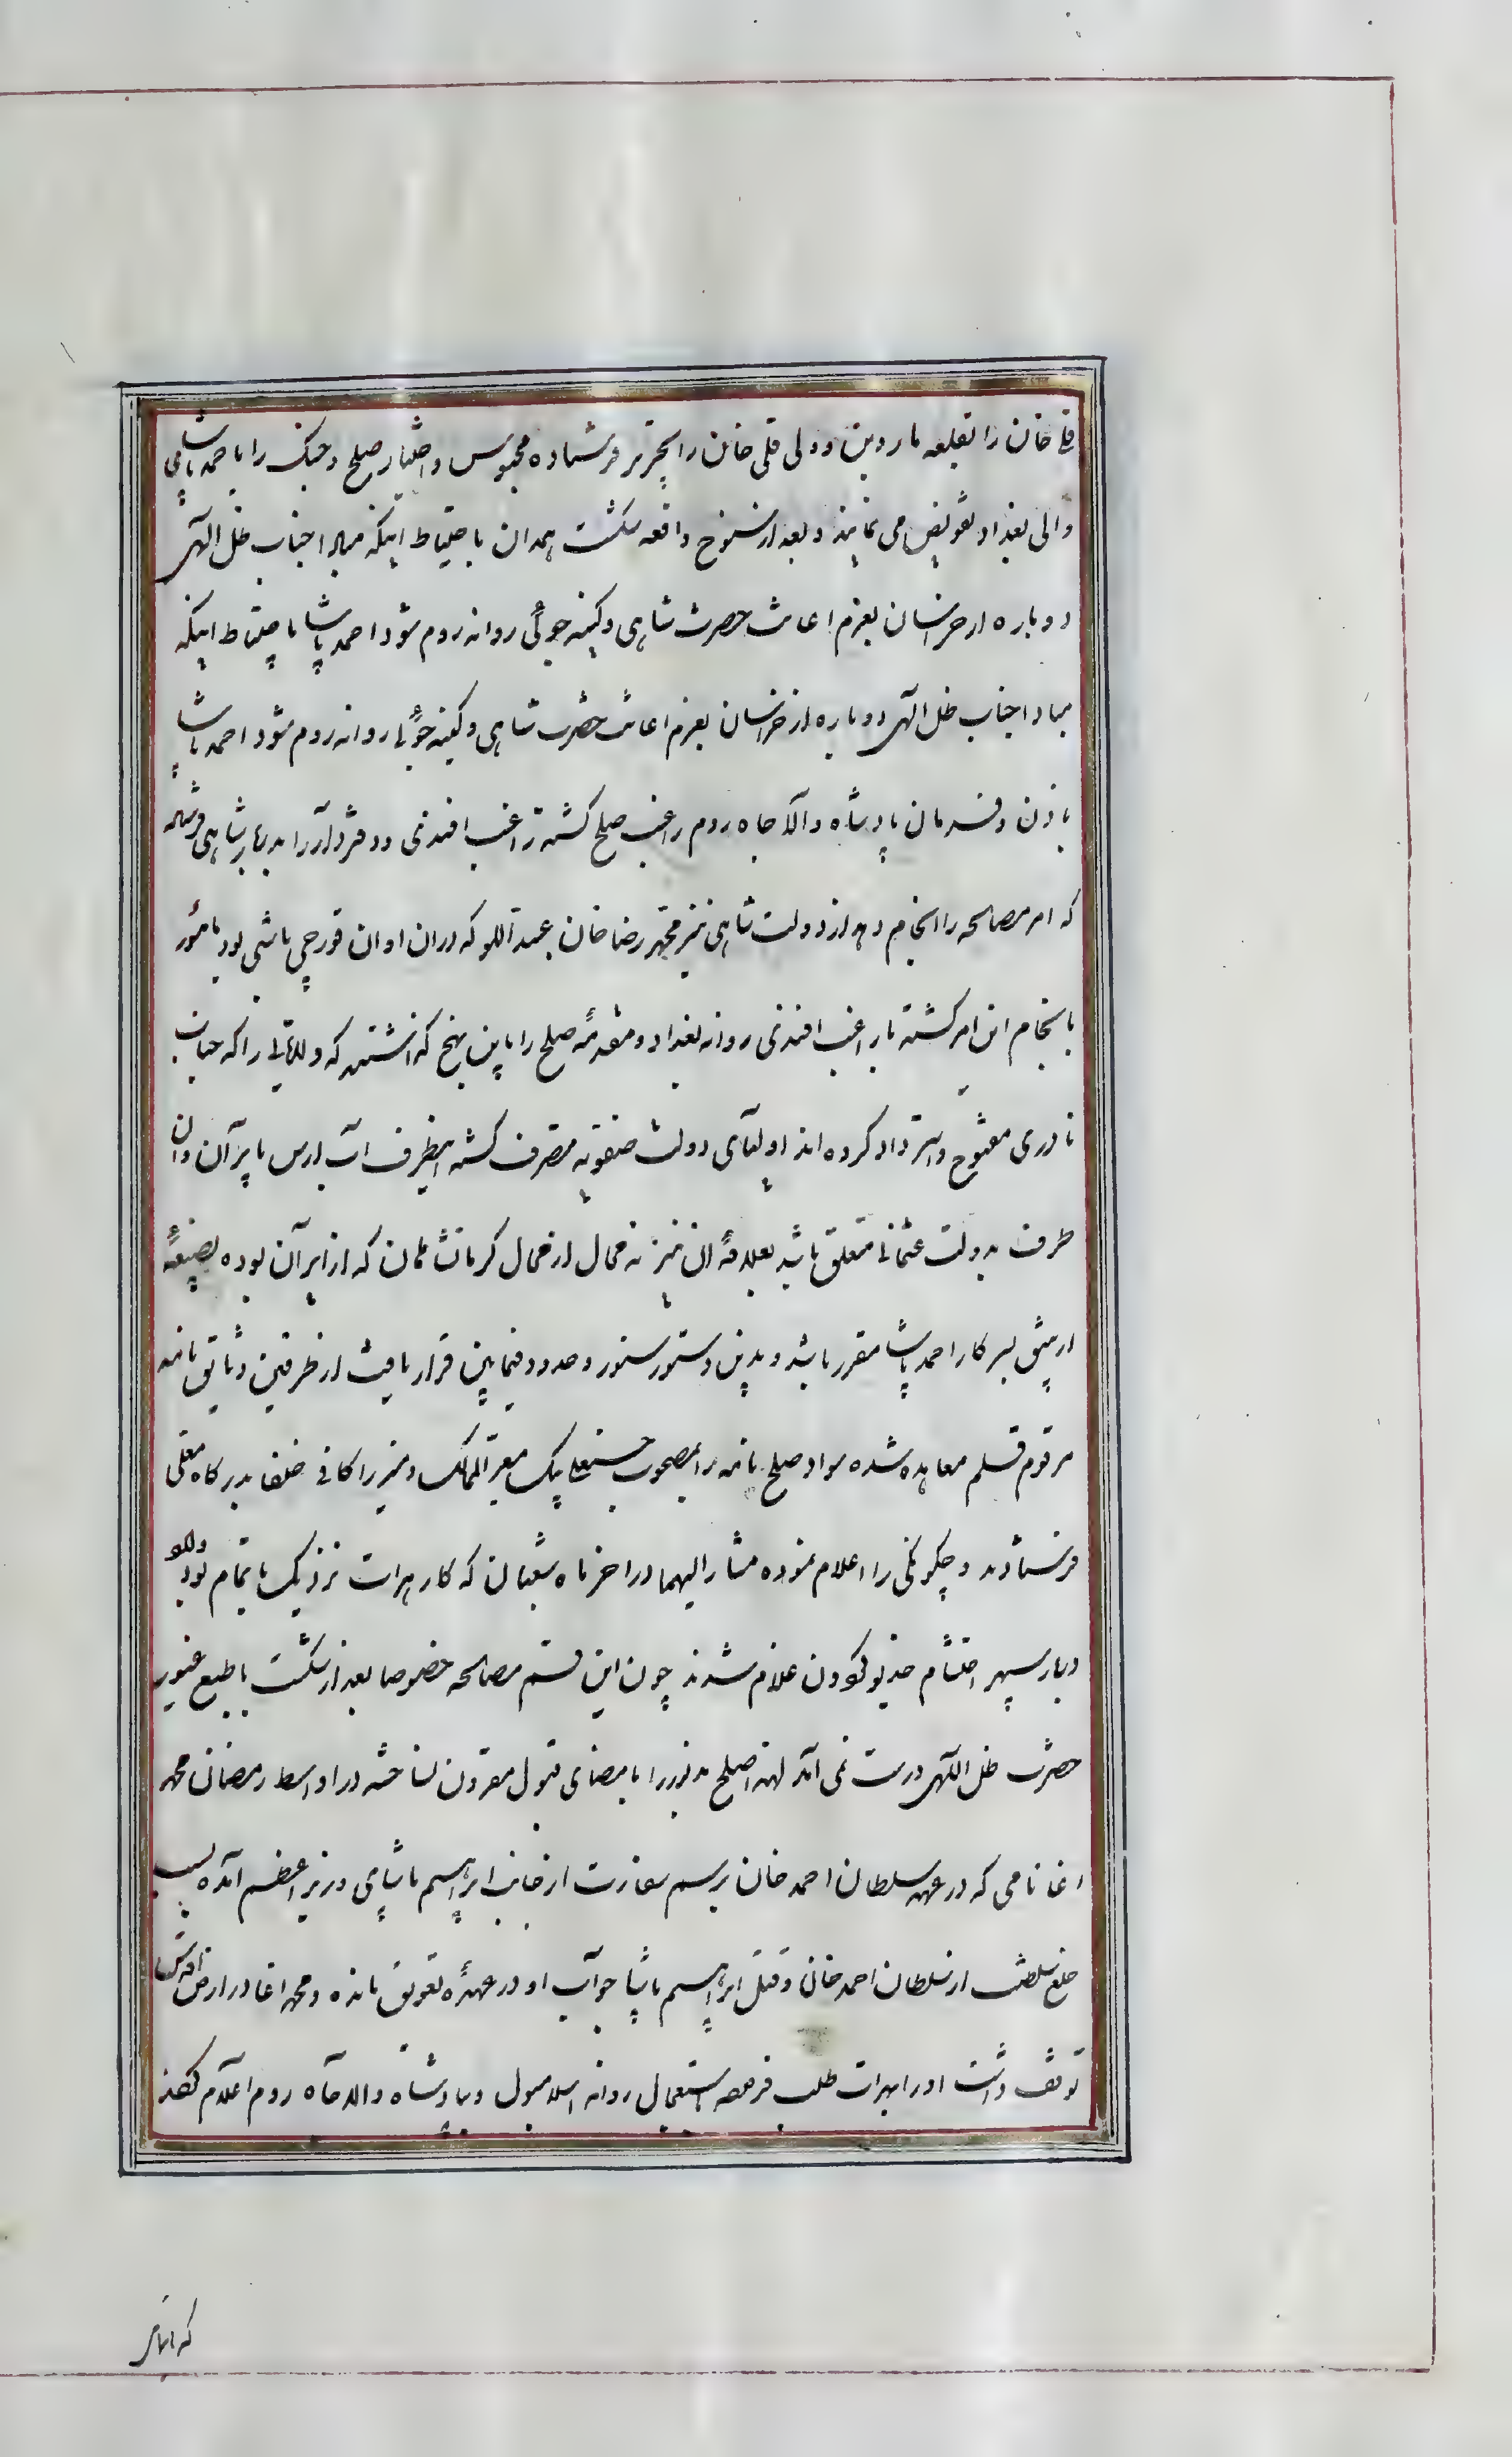 قلی خان را بقلعه ماردین و ولی قلی خان را بجزیره فرستاده محبوس و اختیار صلح و جنک را باحمد پاشای
والی بغداد تفویض می نمایند و بعد از سنوح واقعه شکست همدان باحتیاط اینکه مبادا جناب ظل الهی
دوباره از خراسان بعزم اعانت حضرت شاهی و کینه جوئی روانه روم شود احمد پاشا باحتیاط اینکه
مبادا جناب ظل الهی دوباره از خراسان بعزم اعانت حضرت شاهی و کینه جوئی روانه روم شود احمد پاشا
باذن و فرمان پادشاه والا جاه روم راغب صلح کشته راغب افندی دفتردار را بدربار شاهی فرستاد
که امر مصالحه را انجام دهد از دولت شاهی نیز محمد رضا خان عبداللو که دران اوان قورچی باشی بود مامور
بانجام این امر کشته با راغب افندی روانه بغداد و مقدمه صلح را باین نهج کذاشتند که ولایاتی را که جناب
نادری مفتوح و استرداد کرده اند اولیای دولت صفویه متصرف کشته اینطرف آب ارس با ایران و ان
طرف بدولت عثمانی متعلق باشد بعلاوه ان نیز نه محال از محال کرمانشاهان که از ایران بوده بصیغه
ارپلیق بسرکار احمد پاشا مقرر باشد و بدین دستور سنور و حدود فیمابین قرار یافت از طرفین وثایق نامه
مرقوم قلم معاهده شده سواد صلح نامه را بمصحوب حسنعلی بیک معیر الممالک و میرزا کافی خلفا بدرکاه معلی
فرستادند و چکونکی را اعلام نموده مشارالیهما در اخر ماه شعبان که کار هرات نزدیک باتمام بود وارد
دربار سپهر احتشام خدیو کردون غلام شدند چون این قسم مصالحه خصوصا بعد از شکست با طبع غیور
حضرت ظل اللهی درست نمی آمد لهذا صلح مذبور را بامضای قبول مقرون نساخته در اواسط رمضان محمد
اغا نامی که در عهد سلطان احمد خان برسم سفارت از جانب ابراهیم پاشای وزیر اعظم آمده بسبب
خلع سلطنت از سلطان احمد خان و قتل ابراهیم پاشا جواب او در عهده تعویق مانده و محمد اغا در ارض اقدس
توقف داشت او را بهرات طلب فرموده باستعجال روانه اسلامبول و بپادشاه والا جاه روم اعلام
که اما